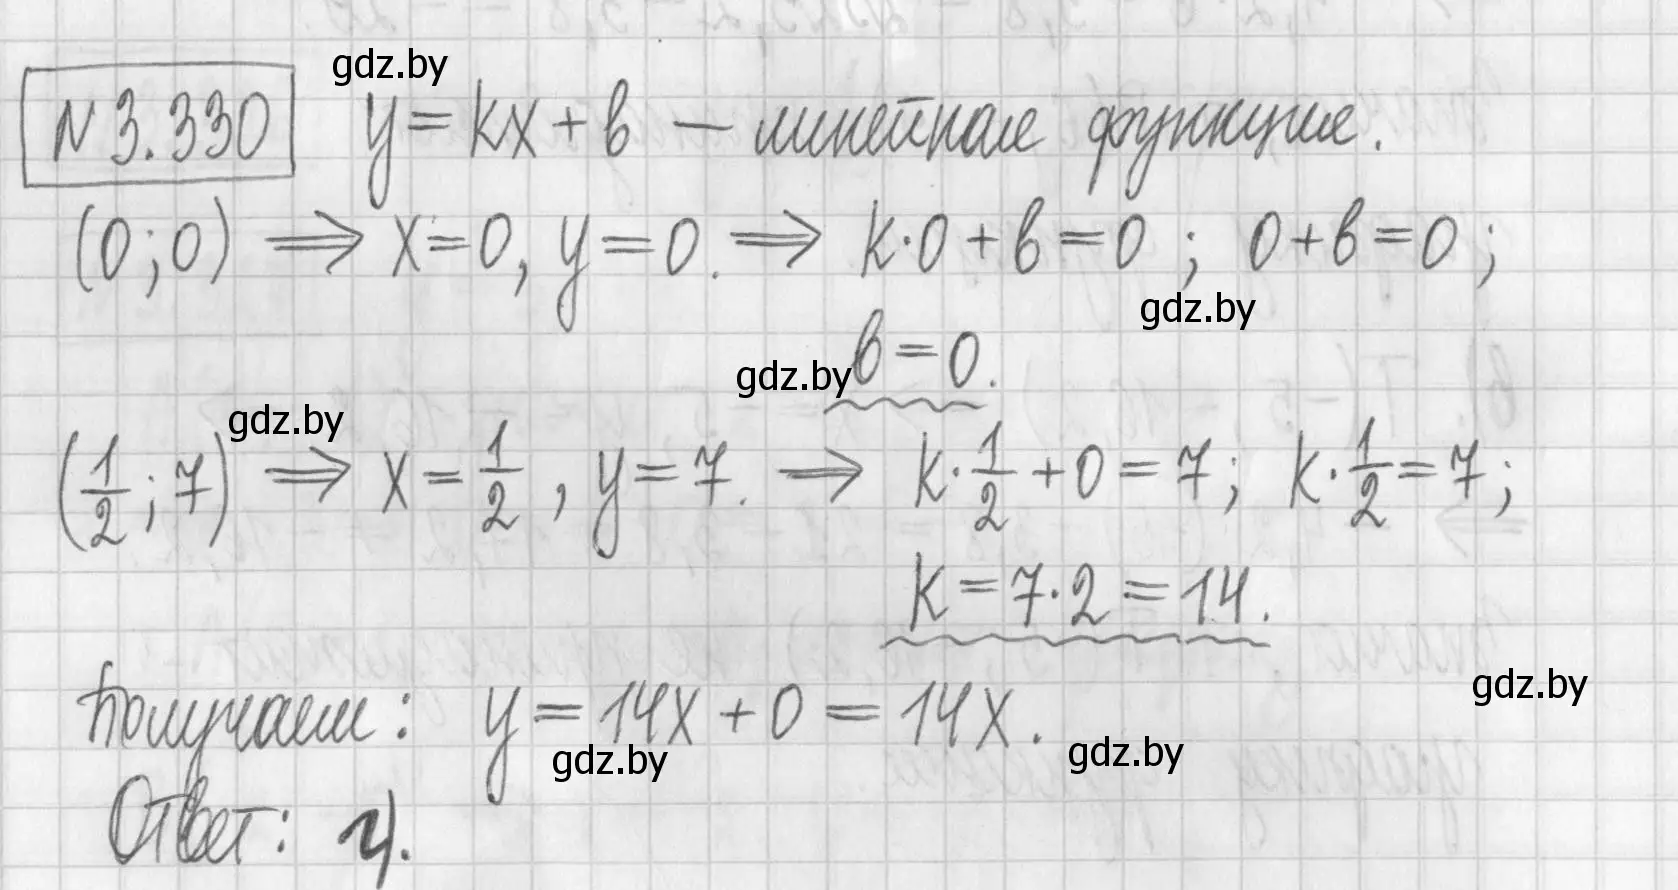 gdz.by
№3.330 y=kx+в – линейная функция.
(0;0) ⇒ x=0, y=0. ⇒ k·0+в=0; 0+в=0;
gdz.by
gdz.by в=0.
gdz.by
(1/2;7) ⇒ x=1/2, y=7. ⇒ k·1/2+0=7; k·1/2=7;
k=7·2=14.
gdz.by
Получаем: y=14x+0=14x.
gdz.by gdz.by
Ответ: г).